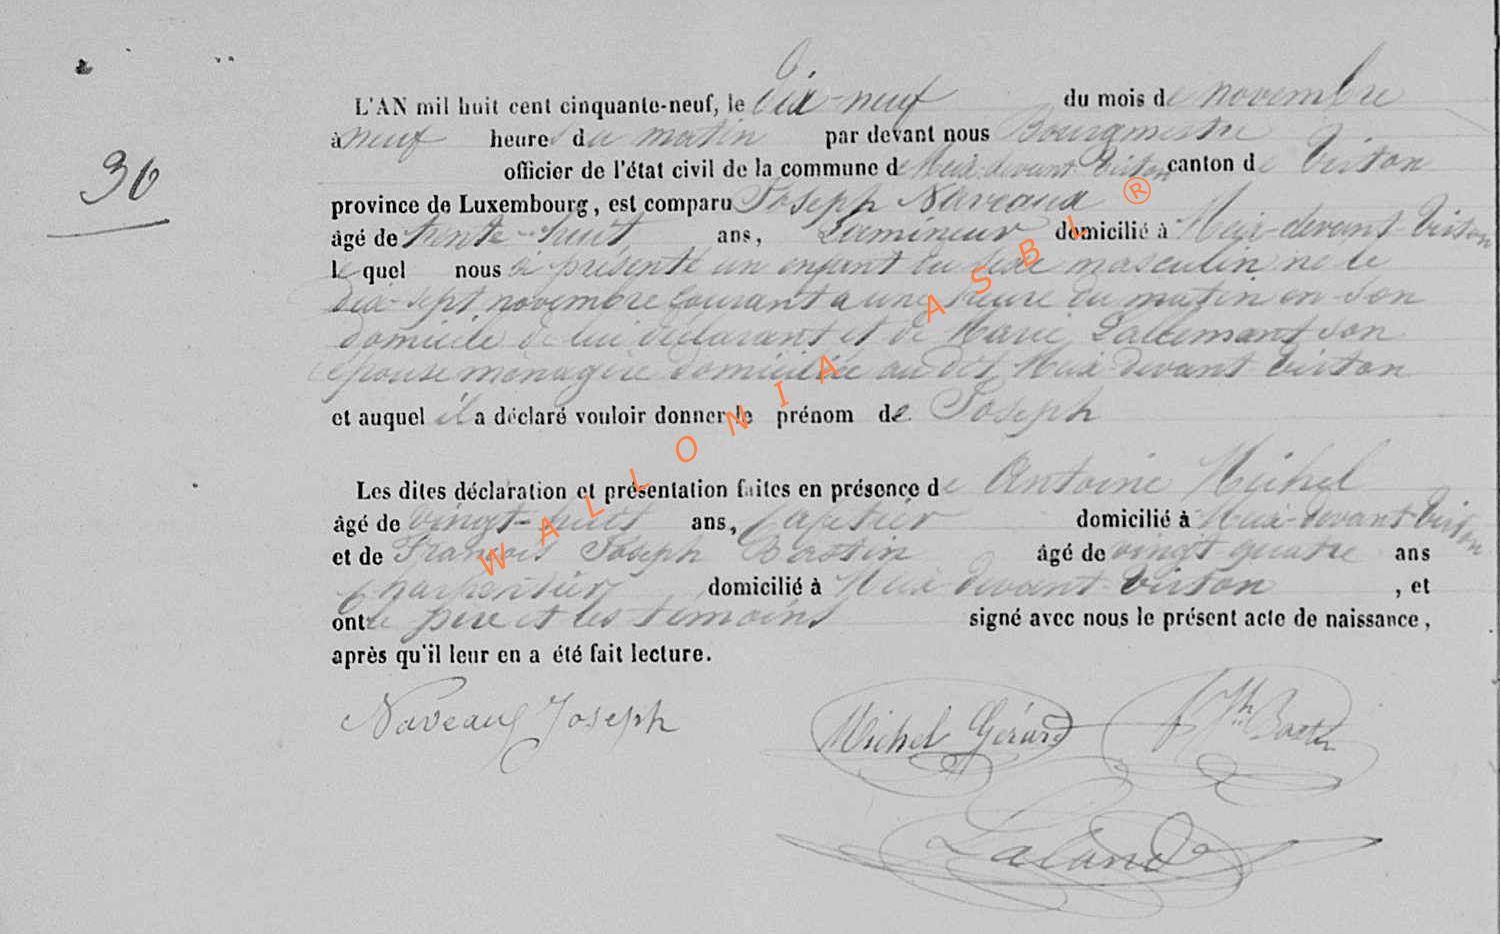 L'AN mil huit cent cinquante-neuf, le dix-neuf du mois de novembre
à neuf heures du matin par devant nous Bourgmestre
30
officier de l'état civil de la commune de Meix-devant Virton canton de Virton
province de Luxembourg, est comparu Joseph Naveaux
âgé de trente-huit ans, Lamineur domicilié à Meix-devant-Virton
le quel nous a présenté un enfant du sexe masculin né le
dix-sept novembre courant a une heure du matin en son
domicile de lui déclarant et de Marie Lallemant son
épouse ménagère domiciliée au dit Meix-devant Virton
et auquel il a déclaré vouloir donner le prénom de Joseph
Les dites déclaration et présentation faites en présence de Antoine Michel
âgé de vingt-huit ans, domicilié à Meix-devant Virton
et de François Joseph Bastin âgé de vingt quatre ans
charpentier domicilié à Meix devant Virton , et
ont le père et les témoins signé avec nous le présent acte de naissance,
après qu'il leur en a été fait lecture.
Naveaux Joseph
Michel Gérard
Bastin
Laland
WALLONIA ASBL ®